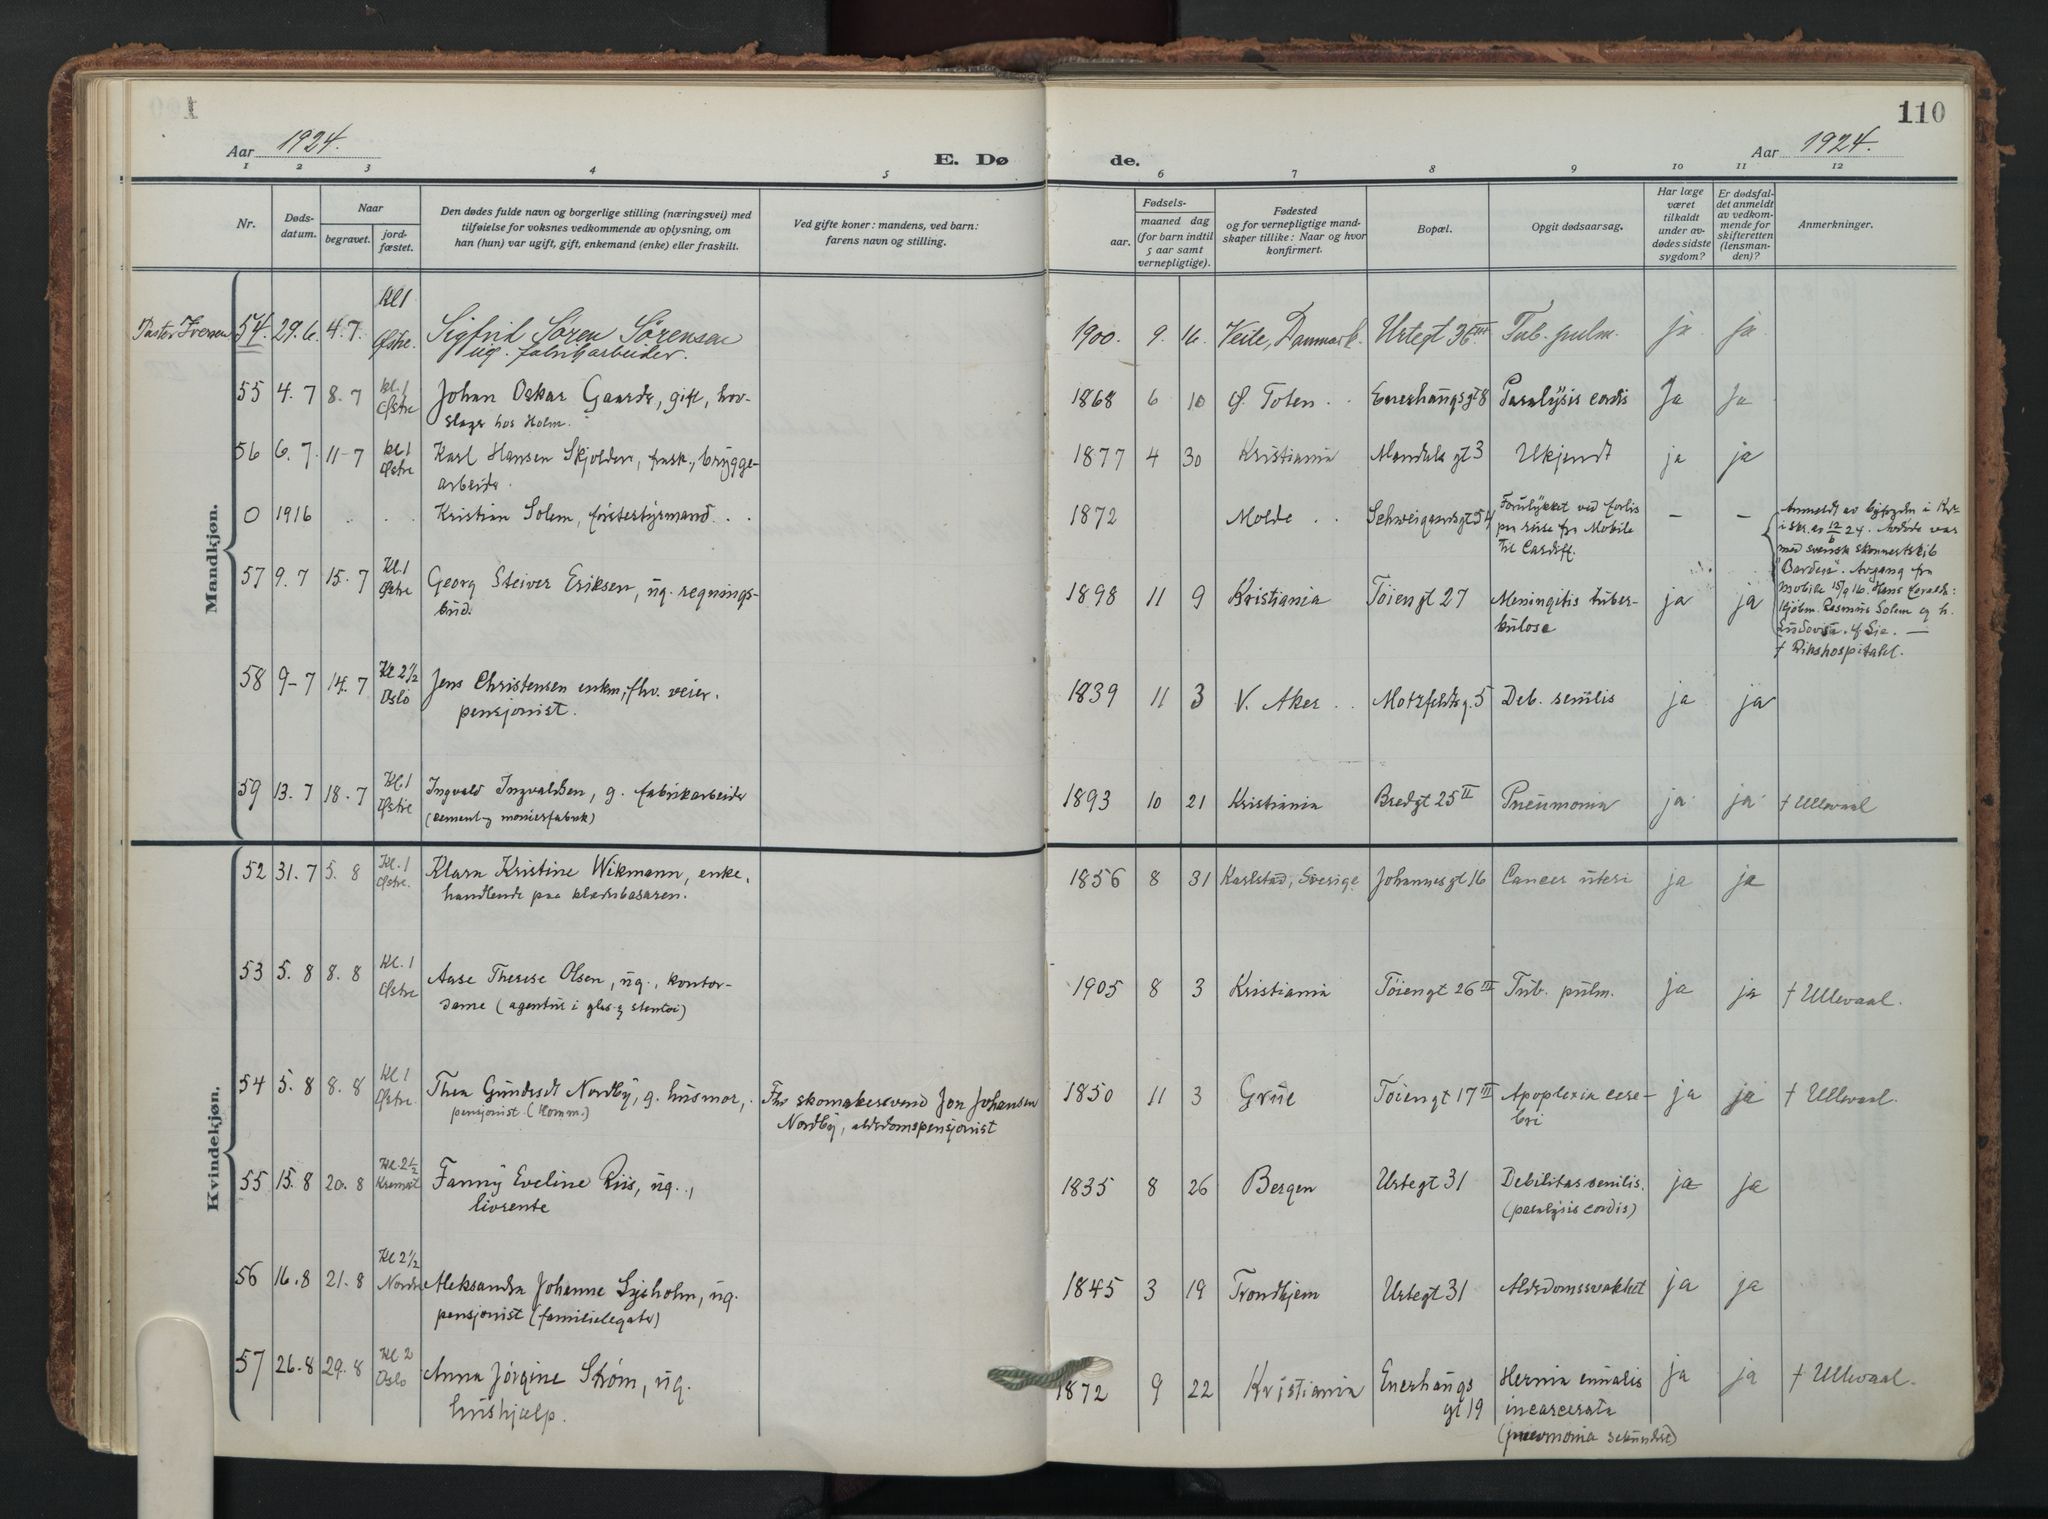 110
Aar 1924.
E. Døde.
Aar 1924.
1 2 3 4 5 6 7 8 9 10 11 12
Nr.
Dødsdatum.
Naar
begravet.
jordfæstet.
Den dødes fulde navn og borgerlige stilling (næringsvei) med
tilføielse for voksnes vedkommende av oplysning, om
han (hun) var ugift, gift, enkemand (enke) eller fraskilt.
Ved gifte koner: mandens, ved barn:
farens navn og stilling.
Fødsels-
aar.
maaned dag
(for barn indtil
5 aar samt
vernepligtige).
Fødested
og for vernepligtige mand-
skaper tillike: Naar og hvor
konfirmert.
Bopæl.
Opgit dødsaarsag.
Har læge
været
tilkaldt
under av-
dødes sidste
sygdom?
Er dødsfal-
det anmeldt
av vedkom-
mende for
skifteretten
(lensman-
den)?
Anmerkninger.
Mandkjøn.
Pastor Iversen 54 29.6 4.7 Kl 1 Østre. Sigfrid Søren Sørensen
ug. fabrikarbeider.
1900. 9. 16. Veile, Danmark. Urtegt 36 III Tub. pulm. ja ja
55 4.7 8.7 kl. 1 Østre Johan Oskar Gaarde, gift, hov-
slager hos Holm.
1868 6 10 Ø. Toten Enerhaugsgt 8 Paralysis cordis Ja Ja
56 6.7 11-7 kl 1 Østre Karl Hansen Skjolden, frask., brygge-
arbeider.
1877 4 30 Kristiania Mandals gt 3 Ukjendt ja ja
0 1916 . . . . Kristian Solem, førstestyrmand . .
1872 Molde . . Schweigaardsgt 54 Forulykket ved forlis
paa reise fra Mobile
til Cardiff. - -
Anmeldt av byfogden i Kr.a
i skr. av 12/6 24. Avdøde var
med svensk skonnertskib
"Barden". Avgang fra
Mobile 15/9 16. Hans forældre:
Kjøbm. Rasmus Solem og h.
Ludovisa f. Lie. —
57 9.7 15.7 Kl. 1 Østre Georg Steiver Eriksen, ug. regnings-
bud.
1898 11 9 Kristiania Tøiengt 27 Meningitis tuber-
kulose ja ja † Rikshospitalet.
58 9-7 14.7 Kl 2½ Oslo Jens Christensen enkm., fhv. veier.
pensjonist.
1839 11 3 V. Aker . . Motzfeldtsg. 5 Deb. senilis ja ja
59 13.7 18.7 Kl. 1 Østre Ingvald Ingvaldsen, g. fabrikarbeider
(cement-og monierfabrik)
1893 10 21 Kristiania Bredgt 25 II Pneumonia ja ja † Ullevaal
Kvindekjøn.
52 31.7 5.8 Kl. 1 Østre. Klara Kristine Wikmann, enke,
handlende paa klædesbasaren.
1856 8 31 Karlstad, Sverige Johannesgt 16 Cancer uteri ja ja
53 5.8 8.8 Kl. 1 Østre Aase Therese Olsen, ug., kontor-
dame (agentur i glas og stentøi)
1905 8 3 Kristiania Tøiengt 26 III Tub. pulm. ja ja † Ullevaal.
54 5.8 8.8 Kl 1 Østre Thea Gundersdt Nordby, g. husmor,.
pensjonist (Komm.)
Fhv skomakersvend Jon Johansen
Nordby, alderdomspensjonist
1850 11 3 Grue Tøiengt 17 III Apoplexia cere-
bri ja ja † Ullevaal.
55 15.8 20.8 Kl. 2½ Kremat Fanny Eveline Riis, ug.,
livrente
1835 8 26 Bergen Urtegt 31 Debilitas senilis.
(paralysis cordis) ja ja
56 16.8 21.8 Kl 2½ Nordre Aleksandra Johanne Lysholm, ug.
pensjonist (familielegater)
1845 3 19 Trondhjem Urtegt 31 Alderdomssvakhet ja ja
57 26.8 29.8 Kl 2 Oslo Anna Jørgine Strøm, ug.
hushjælp.
1872 9 22 Kristiania Enerhaugs
gt 19 Hernia cruralis
incarcerata
(pneumonia sekundær) ja ja † Ullevaal.